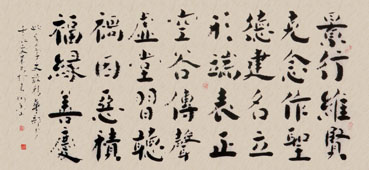 景行維賢
克念作聖
德建名立
形端表正
空谷傳聲
虛堂習聽
禍因惡積
福緣善慶